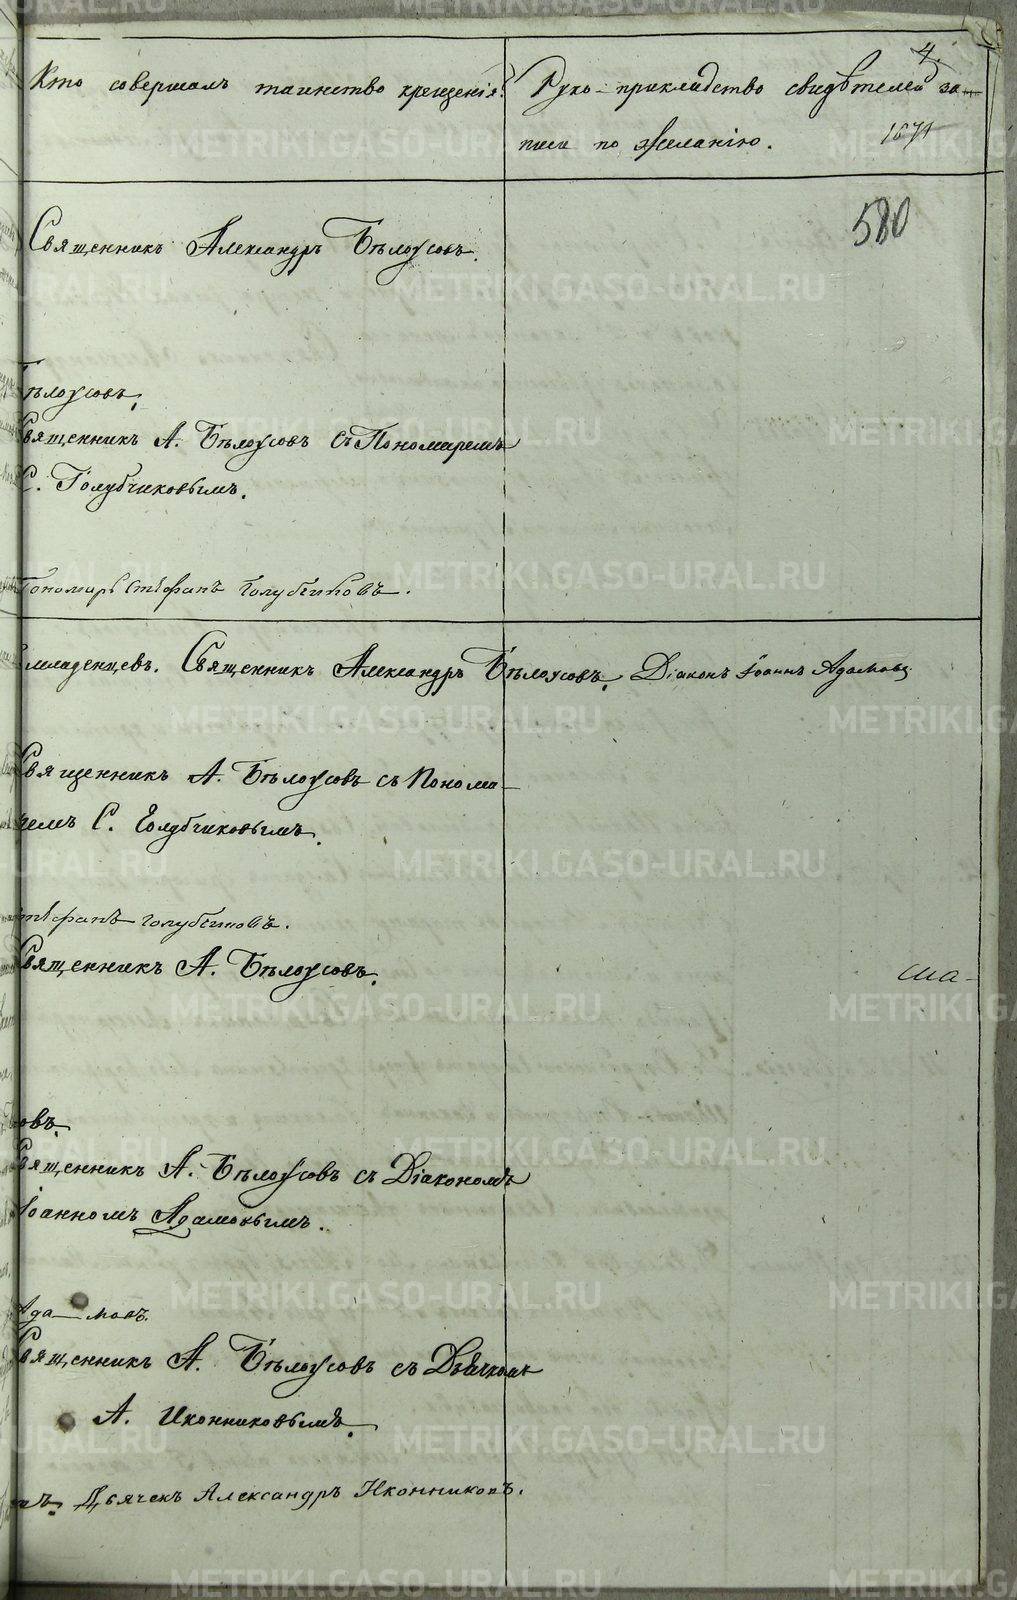 4.
Кто совершалъ таинство крещенія?
Руко-прикладство свидѣтелей за-
писи по желанію.
1671
580
Священникъ Александръ Бѣлоусовъ.
Бѣлоусовъ.
Священникъ А. Бѣлоусовъ съ Пономаремъ
С. Голубчиковымъ.
Пономарь Стефанъ Голубчиковъ.
младенцевъ. Священникъ Александръ Бѣлоусовъ. Діаконъ Іоаннъ Адамовъ
Священникъ А. Бѣлоусовъ съ Понома-
ремъ С. Голубчиковымъ.
Стефанъ Голубчиковъ.
Священникъ А. Бѣлоусовъ.
ша-
овъ.
Священникъ А. Бѣлоусовъ съ Діакономъ
Іоанномъ Адамовымъ.
Ада-мовъ.
Священникъ А. Бѣлоусовъ съ Дьячкомъ
А. Иконниковымъ.
Дьячекъ Александръ Иконниковъ.
METRIKI.GASO-URAL.RU